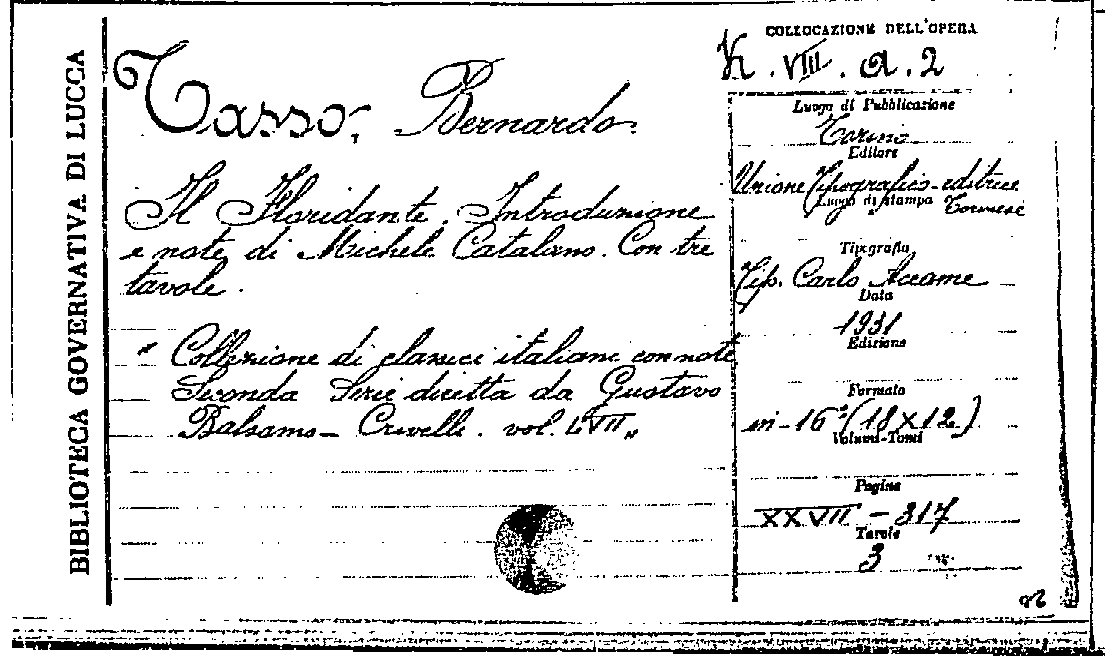 BIBLIOTECA GOVERNATIVA DI LUCCA
Tasso, Bernardo.
Il Floridante. Introduzione
e note di Michele Catalano. Con tre
tavole.
" Collezione di classici italiani con note
Seconda Serie diretta da Gustavo
Balsamo-Crivelli. vol. LVII "
COLLOCAZIONE DELL'OPERA
VIII. a. 2
Luogo di Pubblicazione
Torino
Editore
Unione Tipografico-editrice
Luogo di stampa Torinese
Tipografia
Tip. Carlo Accame
Data
1931
Edizione
Formato
in-16° (18x12)
Volumi-Tomi
Pagine
XXVII - 317
Tavole
3